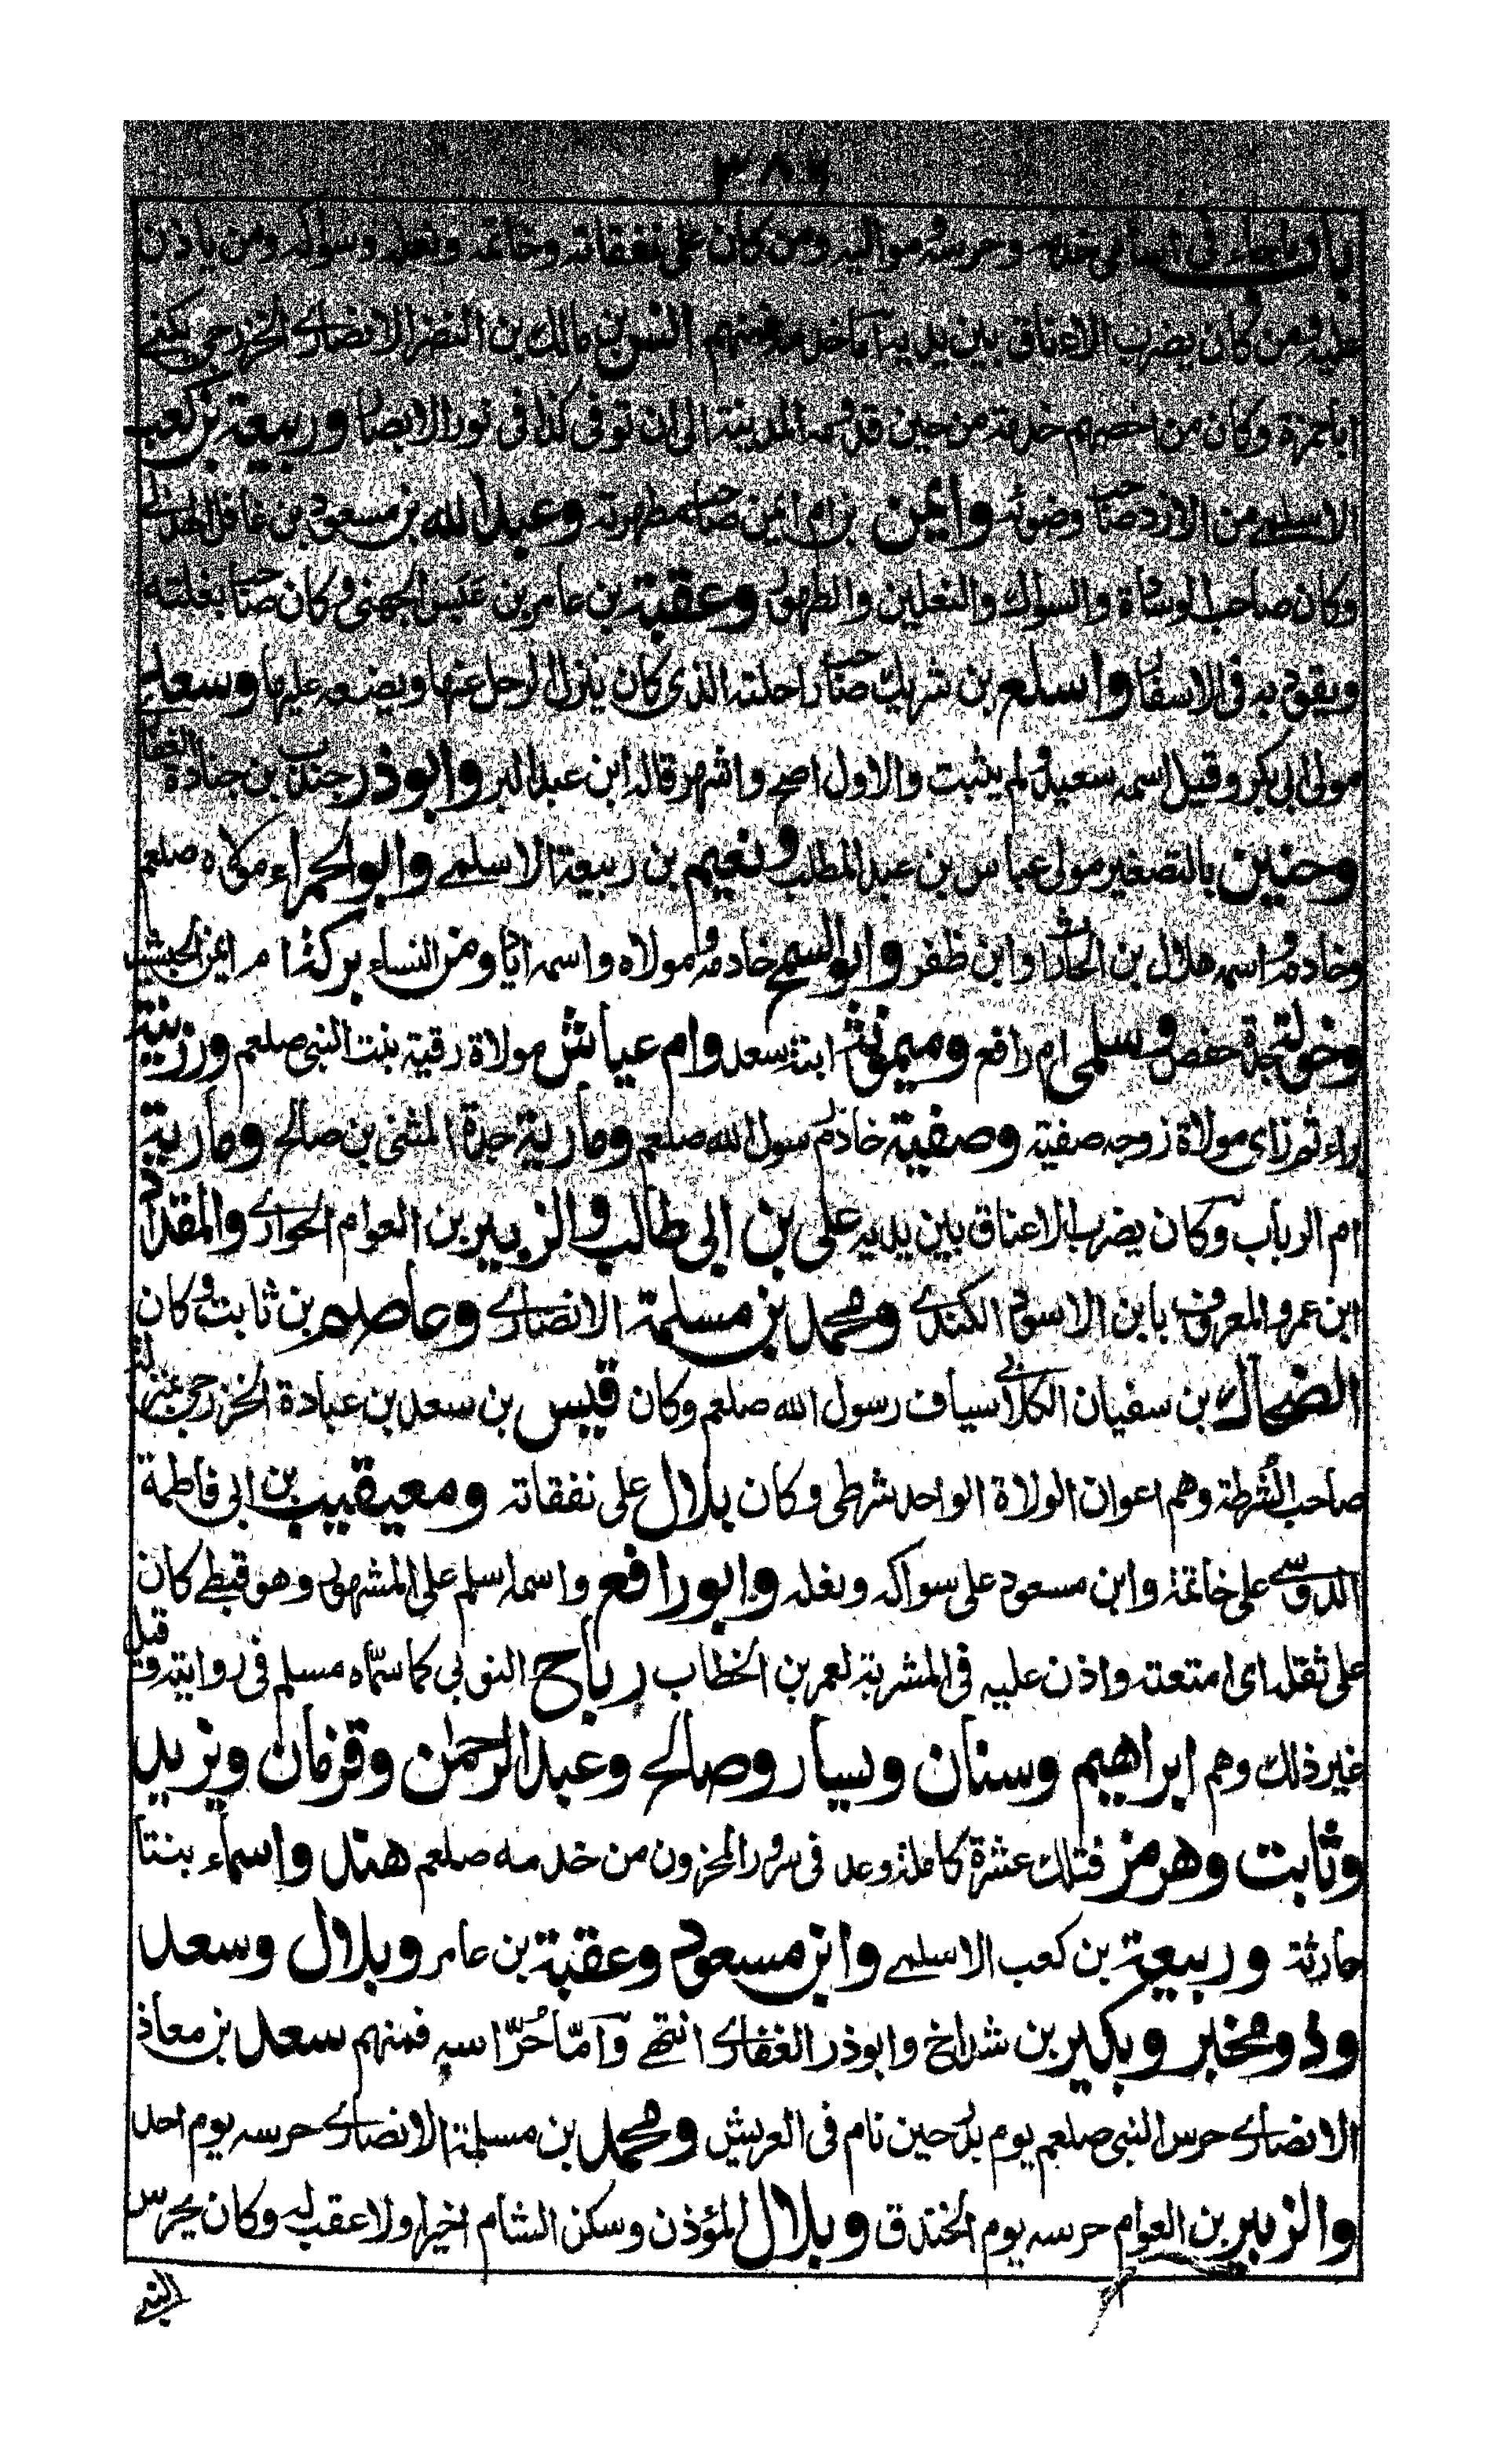 ٣٨٦
باب ما جاء فى اسامى خدمه وحرسه ومواليه ومن كان على نفقاته وخاتمه ونعله وسواكه ومن ياذن
عليه ومن كان يضرب الاعناق بين يديه اما خدمه فمنهم انس بن مالك بن النضر الانصارى الخزرجى يكنى
اباحمزة وكان من اخصهم خدمة من حين قدومه المدينة الى ان توفى كذا فى نور الابصار وربيعة بن كعب
الاسلمى من الازد صاحب وضوئه وايمن بن ام ايمن صاحب مطهرته وعبد الله بن مسعود بن غافل الهذلى
وكان صاحب الوسادة والسواك والنعلين والطهور وعقبة بن عامر بن عَبَس الجهنى وكان صاحب بغلته
ويقود به فى الاسفار واسلع بن شريك صاحب راحلته الذى كان ينزل الرحل عنها ويضعه عليها وسعد
مولى ابى بكر وقيل اسمه سعيد ولم يثبت والاول اصح واشهر قاله ابن عبد البر وابوذر جندب بن جنادة الغفارى
وحنين بالتصغير مولى عباس بن عبد المطلب ونعيم بن ربيعة الاسلمى وابوالحمراء مولاه صلعم
وخادمه اسمه هلال بن الحارث وابن ظفر وابوالسمح خادمه ومولاه واسمه اياد ومن النساء بركة ام ايمن الحبشية
وخولة جدة حفص وسلمى ام رافع وميمونة ابنة سعد وام عياش مولاة رقية بنت النبى صلعم ورزينة
براء ثم زاى مولاة زوجه صفية وصفية خادم رسول الله صلعم ومارية جدة المثنى بن صالح ومارية
ام الرباب وكان يضرب الاعناق بين يديه على بن ابى طالب والزبير بن العوام الحوارى والمقداد
ابن عمرو المعروف بابن الاسود الكندى ومحمد بن مسلمة الانصارى وعاصم بن ثابت وكان
الضحاك بن سفيان الكلابى سياف رسول الله صلعم وكان قيس بن سعد بن عبادة الخزرجى بمنزلة
صاحب الشرطة وهم اعوان الولاة الواحد شرطى وكان بلال على نفقاته ومعيقيب بن ابى فاطمة
الدوسى على خاتمه وابن مسعود على سواكه ونعله وابورافع واسمه اسلم على المشهور وهو قبطى كان
على ثقله اى امتعته واذن عليه فى المشربة لعمر بن الخطاب رباح النوبى كما سمّاه مسلم فى روايته وقيل
غير ذلك وهم ابراهيم وسنان ويسار وصالح وعبدالرحمٰن وقزمان ويزيد
وثابت وهرمز فتلك عشرة كاملة وعد فى سرور المحزون من خدمه صلعم هند واسماء بنتا
حارثة وربيعة بن كعب الاسلمى وابن مسعود وعقبة بن عامر وبلال وسعد
وذومخبر وبكير بن شداخ وابوذر الغفارى انتهى وامّا حُرّاسه فمنهم سعد بن معاذ
الانصارى حرس النبى صلعم يوم بدر حين نام فى العريش ومحمد بن مسلمة الانصارى حرسه يوم احد
والزبير بن العوام حرسه يوم الخندق وبلال المؤذن وسكن الشام اخيرا ولا عقب له وكان يحرس
النبى